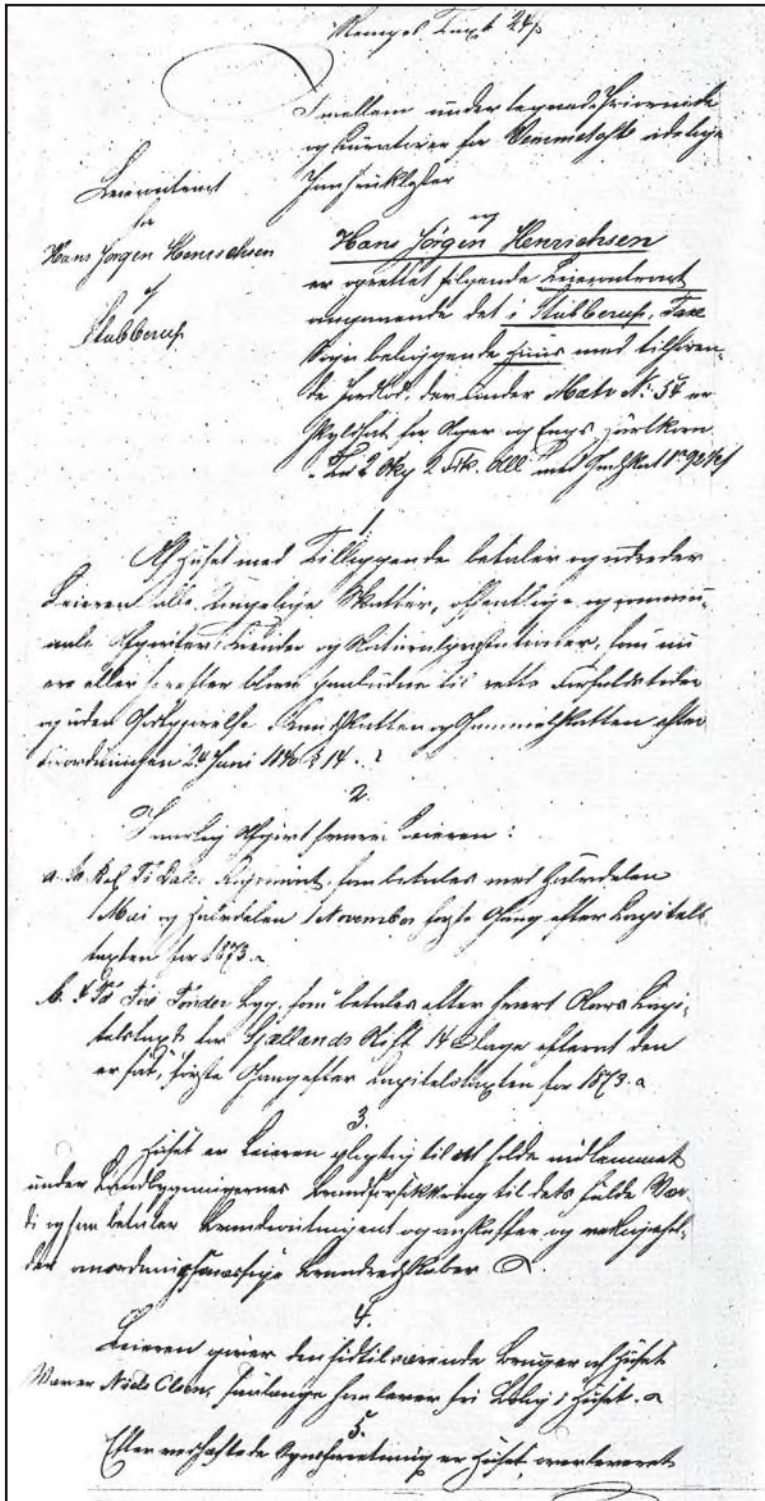 Stempel Taxt 24 ß
Imellem undertegnede Priorinde
og Curatorer for Vemmetofte adelige
Jomfrukloster
og
Hans Jörgen Henrichsen
er oprettet følgende Leiecontract
angaaende det i Stubberup, Taxe
Sogn beliggende Huus med tilhøren-
de Jordlod, der under Matr. № 54 er
skyldsat for Ager og Engs Hartkorn
2 Fdk. Alb med
Leiecontract
for
Hans Jørgen Henrichsen
af
Stubberup
1.
Af Huset med Tilliggende betaler og udreder
Leieren alle kongelige Skatter, offentlige og commu-
nale Afgivter, og Naturalpræstationer, som nu
ere eller herefter blive paabudne til rette Forfaldstider
og uden Godtgjørelse og Gammelskatten efter
Forordningen 24 Juni 1840 § 14.
2.
I aarlig Afgivt svarer Leieren:
a. to Rd. som betales med Halvdelen
1 Mai og Halvdelen 1 November første Gang efter Kapitels-
taxten for 1873.
b. To Tønder Byg, som betales efter hvert Aars Capi-
telstaxt for Sjællands Stift 14 Dage efterat den
er sat, første Gang efter Capitelstaxten for 1873.
3.
Huset er Leieren pligtig til at holde indlemmet
under Landbygningernes Brandforsikkring til dets fulde Vær-
di og han betaler Brandcontingent og anskaffer og vedligehol-
der anordningsmæssige Brandredskaber.
4.
Leieren giver den hidtilværende Bruger af Huset
Niels Olsen, saalænge han lever fri Bolig i Huset.
5.
Efter vedhæftede Synsforretning er Huset overleveret